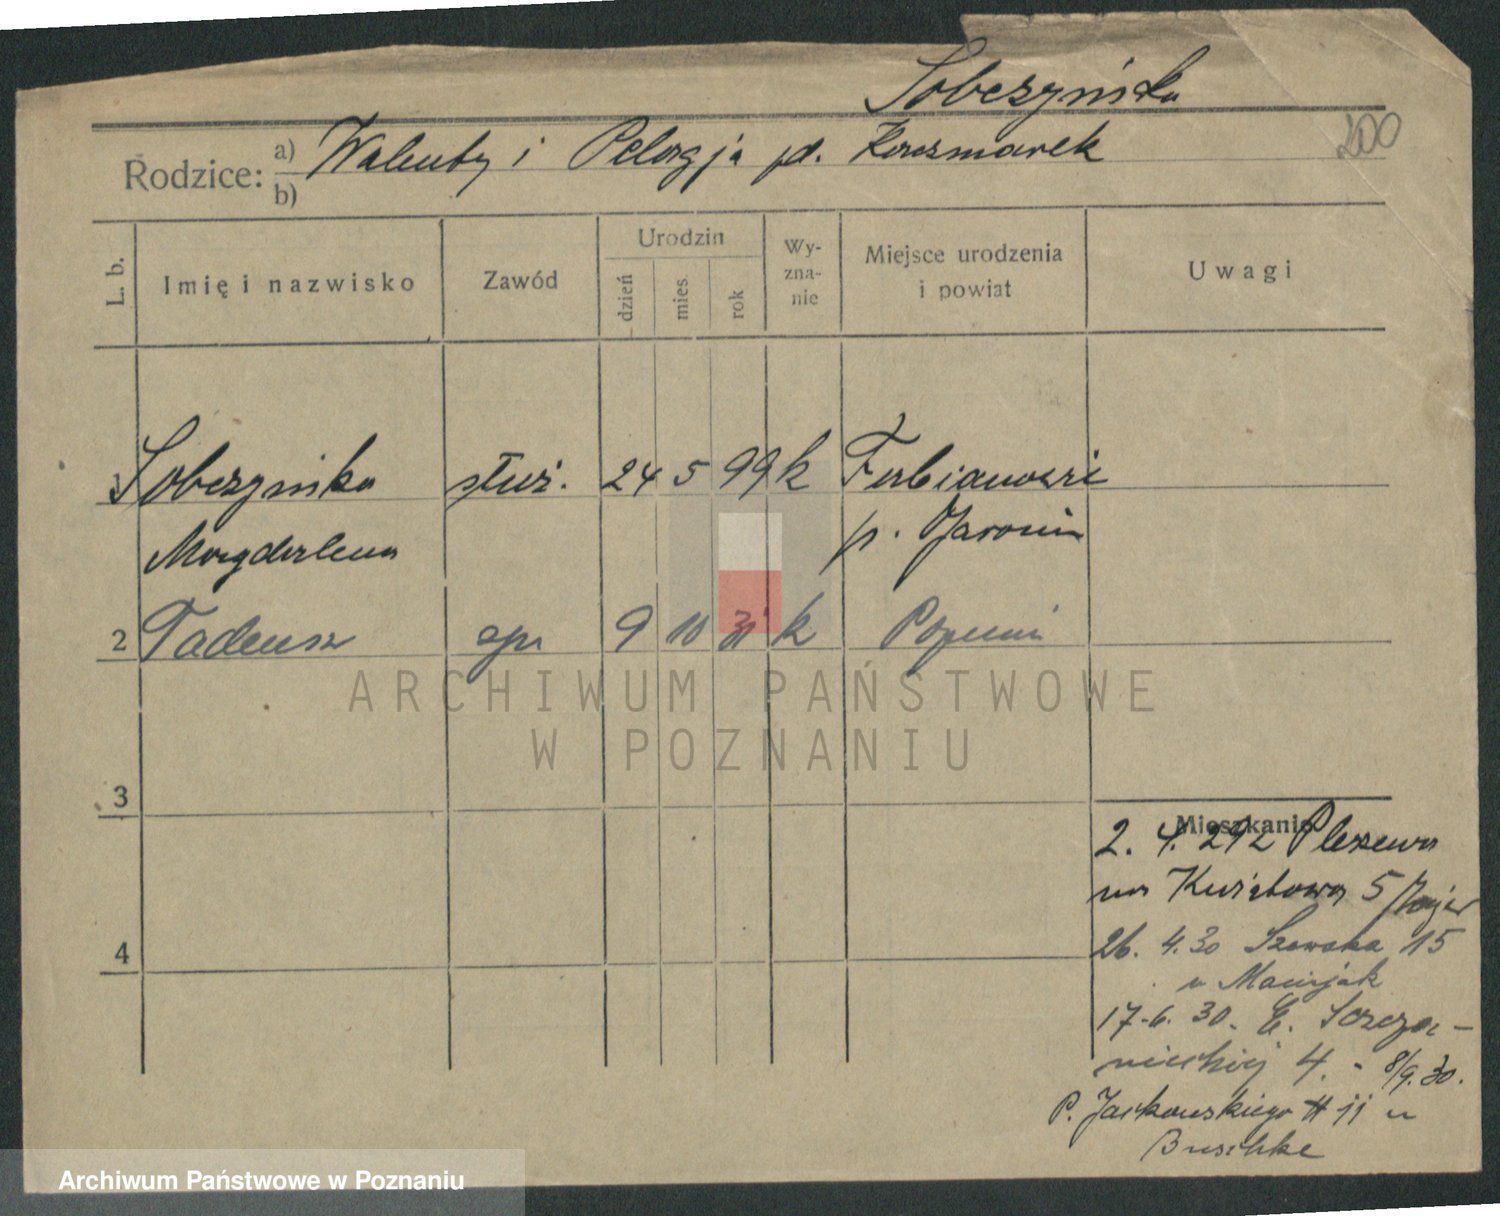 Sobczyńska
200
Rodzice: a) Walenty i Pelagja pd. Kaczmarek
b)
L. b.
Imię i nazwisko
Zawód
Urodzin
dzień
mies.
rok
Wy-
zna-
nie
Miejsce urodzenia
i powiat
Uwagi
1 Sobczyńska służ. 24 5 99 k Fabianowie
Magdalena p. Jarocin
2 Tadeusz syn 9 10 31 k Poznań
ARCHIWUM PAŃSTWOWE
W POZNANIU
3
4
Mieszkanie
2. 4. 29 z Pleszewa
na Kwiatowa 5
26. 4. 30 Szewska 15
u Maciejak
17. 6. 30. E. Sczza-
nieckiej 4. - 8/9. 30.
P. Jackowskiego 11 u
Buschke
Archiwum Państwowe w Poznaniu